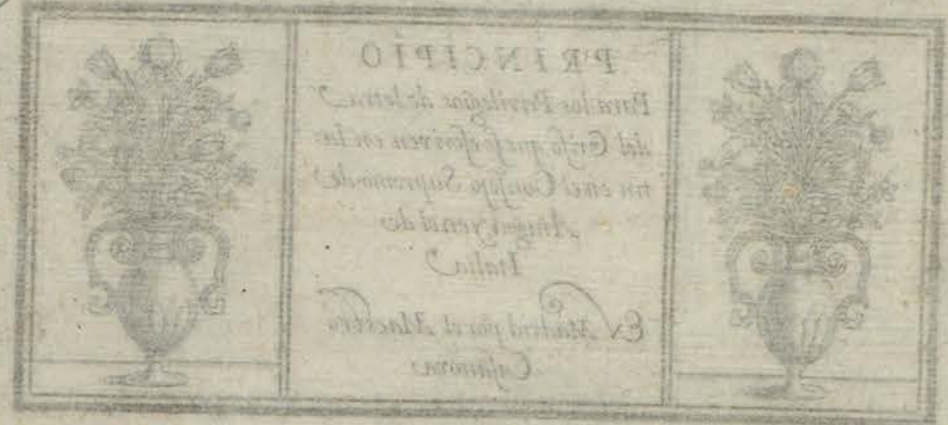 PRINCIPIO
Para los Privilegios de letra
del Grifo que se escriven en la
tin en el Consejo Supremo de
Aragon y en el de
Italia
En Madrid por el Maestro
Casanova